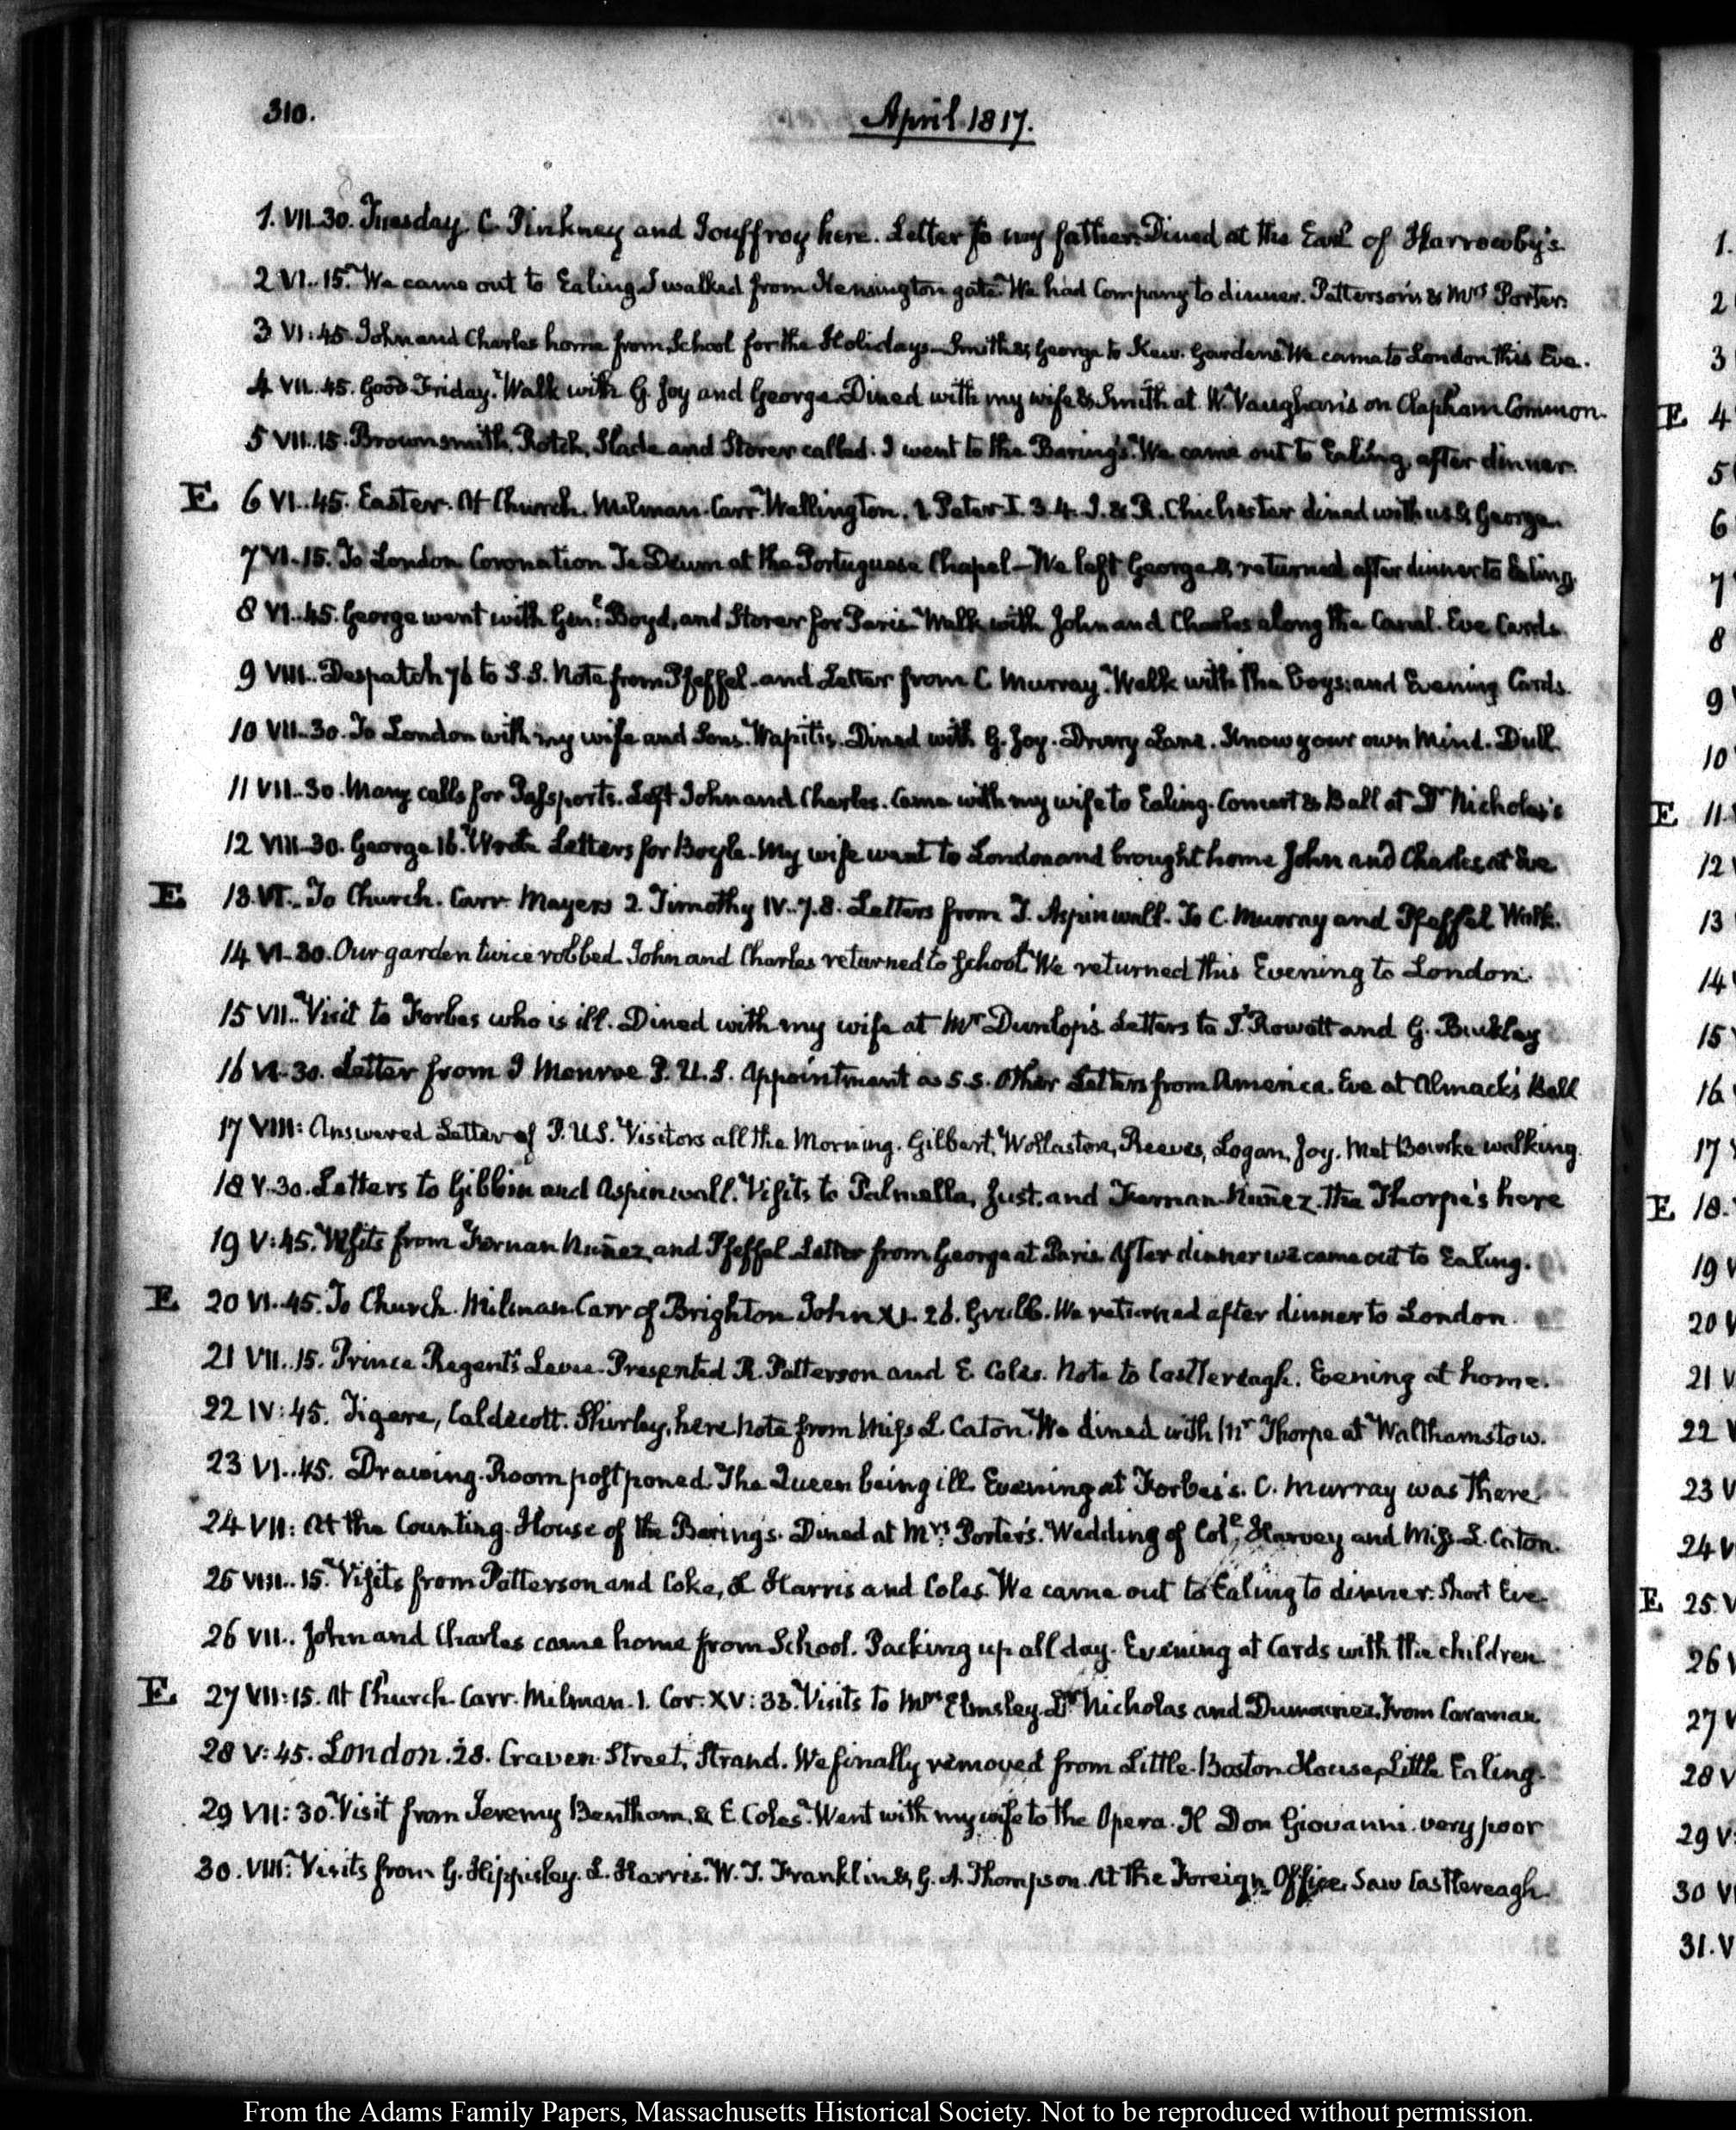 310.
April 1817.
1. VII..30. Tuesday. C. Pinkney and Jouffroy here. Letter to my father. Dined at the Earl of Harrowby's.
2 VI..15. We came out to Ealing. I walked from Kensington gate. We had Company to dinner. Patterson's & Mrs Porter.
3 VI:45. John and Charles home from School for the Holidays—Smith & George to Kew. Gardens. We came to London this Eve.
4 VII..45. Good Friday. Walk with G. Joy and George. Dined with my wife & Smith at W. Vaughan's on Clapham Common.
5 VII.15. Brown smith, Rotch, Slade and Storer called. I went to the Baring's. We came out to Ealing, after dinner.
E 6 VI..45. Easter. At Church. Milman. Carr. Wellington. 1. Peter I. 3.4. J. & R. Chichester dined with us & George.
7 VI..15. To London. Coronation Te Deum at the Portuguese Chapel—We left George & returned after dinner to Ealing.
8 VI..45. George went with Genl. Boyd, and Storer for Paris. Walk with John and Charles along the Canal. Eve Cards.
9 VIII.. Despatch 76 to S.S. Note from Pfeffel. and Letter from C. Murray. Walk with the Boys: and Evening Cards.
10 VII..30. To London with my wife and Sons. Wapitis. Dined with G. Joy. Drury Lane. Know your own Mind. Dull.
11 VII..30. Many calls for Passports. Left John and Charles. Came with my wife to Ealing. Concert & Ball at Dr Nicholas's
12 VIII..30. George 16. Wrote Letters for Boyle. My wife went to London and brought home John and Charles at Eve
E 13. VI.. To Church. Carr. Mayers 2. Timothy IV..7.8. Letters from T. Aspinwall. To C. Murray and Pfeffel Walk.
14 VI..30. Our garden twice robbed. John and Charles returned to School. We returned this Evening to London.
15 VII.. Visit to Forbes who is ill. Dined with my wife at Mr Dunlop's. Letters to T. Rowett and G. Buckley
16 VI..30. Letter from J Monroe P. U.S. Appointment as S.S. Other Letters from America. Eve at Almack's Ball
17 VIII: Answered Letter of P. U.S. Visitors all the Morning. Gilbert, Wollaston, Reeves, Logan, Joy. Met Bourke walking.
18 V..30. Letters to Gibbin and Aspinwall. Visits to Palmella, Just, and Fernan Nuñez. The Thorpe's here
19 V:45. Visits from Fernan Nuñez, and Pfeffel Letter from George at Paris. After dinner we came out to Ealing.
E 20 VI..45. To Church. Milman. Carr of Brighton John XI. 26. We returned after dinner to London.
21 VII..15. Prince Regent's Levee. Presented R. Patterson and E. Coles. Note to Castlereagh. Evening at home.
22 IV:45. Tigere, Caldecott. Shirley, here. Note from Miss L. Caton. We dined with Mr Thorpe at Walthamstow.
23 VI..45. Drawing-Room postponed. The Queen being ill. Evening at Forbes's. C. Murray was there
24 VII: At the Counting-House of the Baring's. Dined at Mrs: Porter's. Wedding of Coll. Harvey and Miss L. Caton.
25 VIII..15. Visits from Patterson and Coke, L Harris and Coles. We came out to Ealing to dinner. Short Eve
26 VII.. John and Charles came home from School. Packing up all day. Evening at Cards with the children
E 27 VII:15. At Church. Carr. Milman. 1. Cor. XV:33. Visits to Mrs Elmsley. Dr Nicholas and Dumouriez. From Caraman.
28 V:45. London. 28. Craven Street, Strand. We finally removed from Little-Boston House, Little Ealing.
29 VII:30. Visit from Jeremy Bentham, & E. Coles. Went with my wife to the Opera. Il Don Giovanni. very poor
30. VIII: Visits from G. Hippisley. L. Harris. W. T. Franklin &, G. A. Thompson. At the Foreign Office. Saw Castlereagh.
1.
2
3
E 4
5
6
7
8
9
10
E 11
12
13
14
15
16
17
E 18.
19
20
21
22
23
24
E 25
26
27
28
29
30
31.
From the Adams Family Papers, Massachusetts Historical Society. Not to be reproduced without permission.